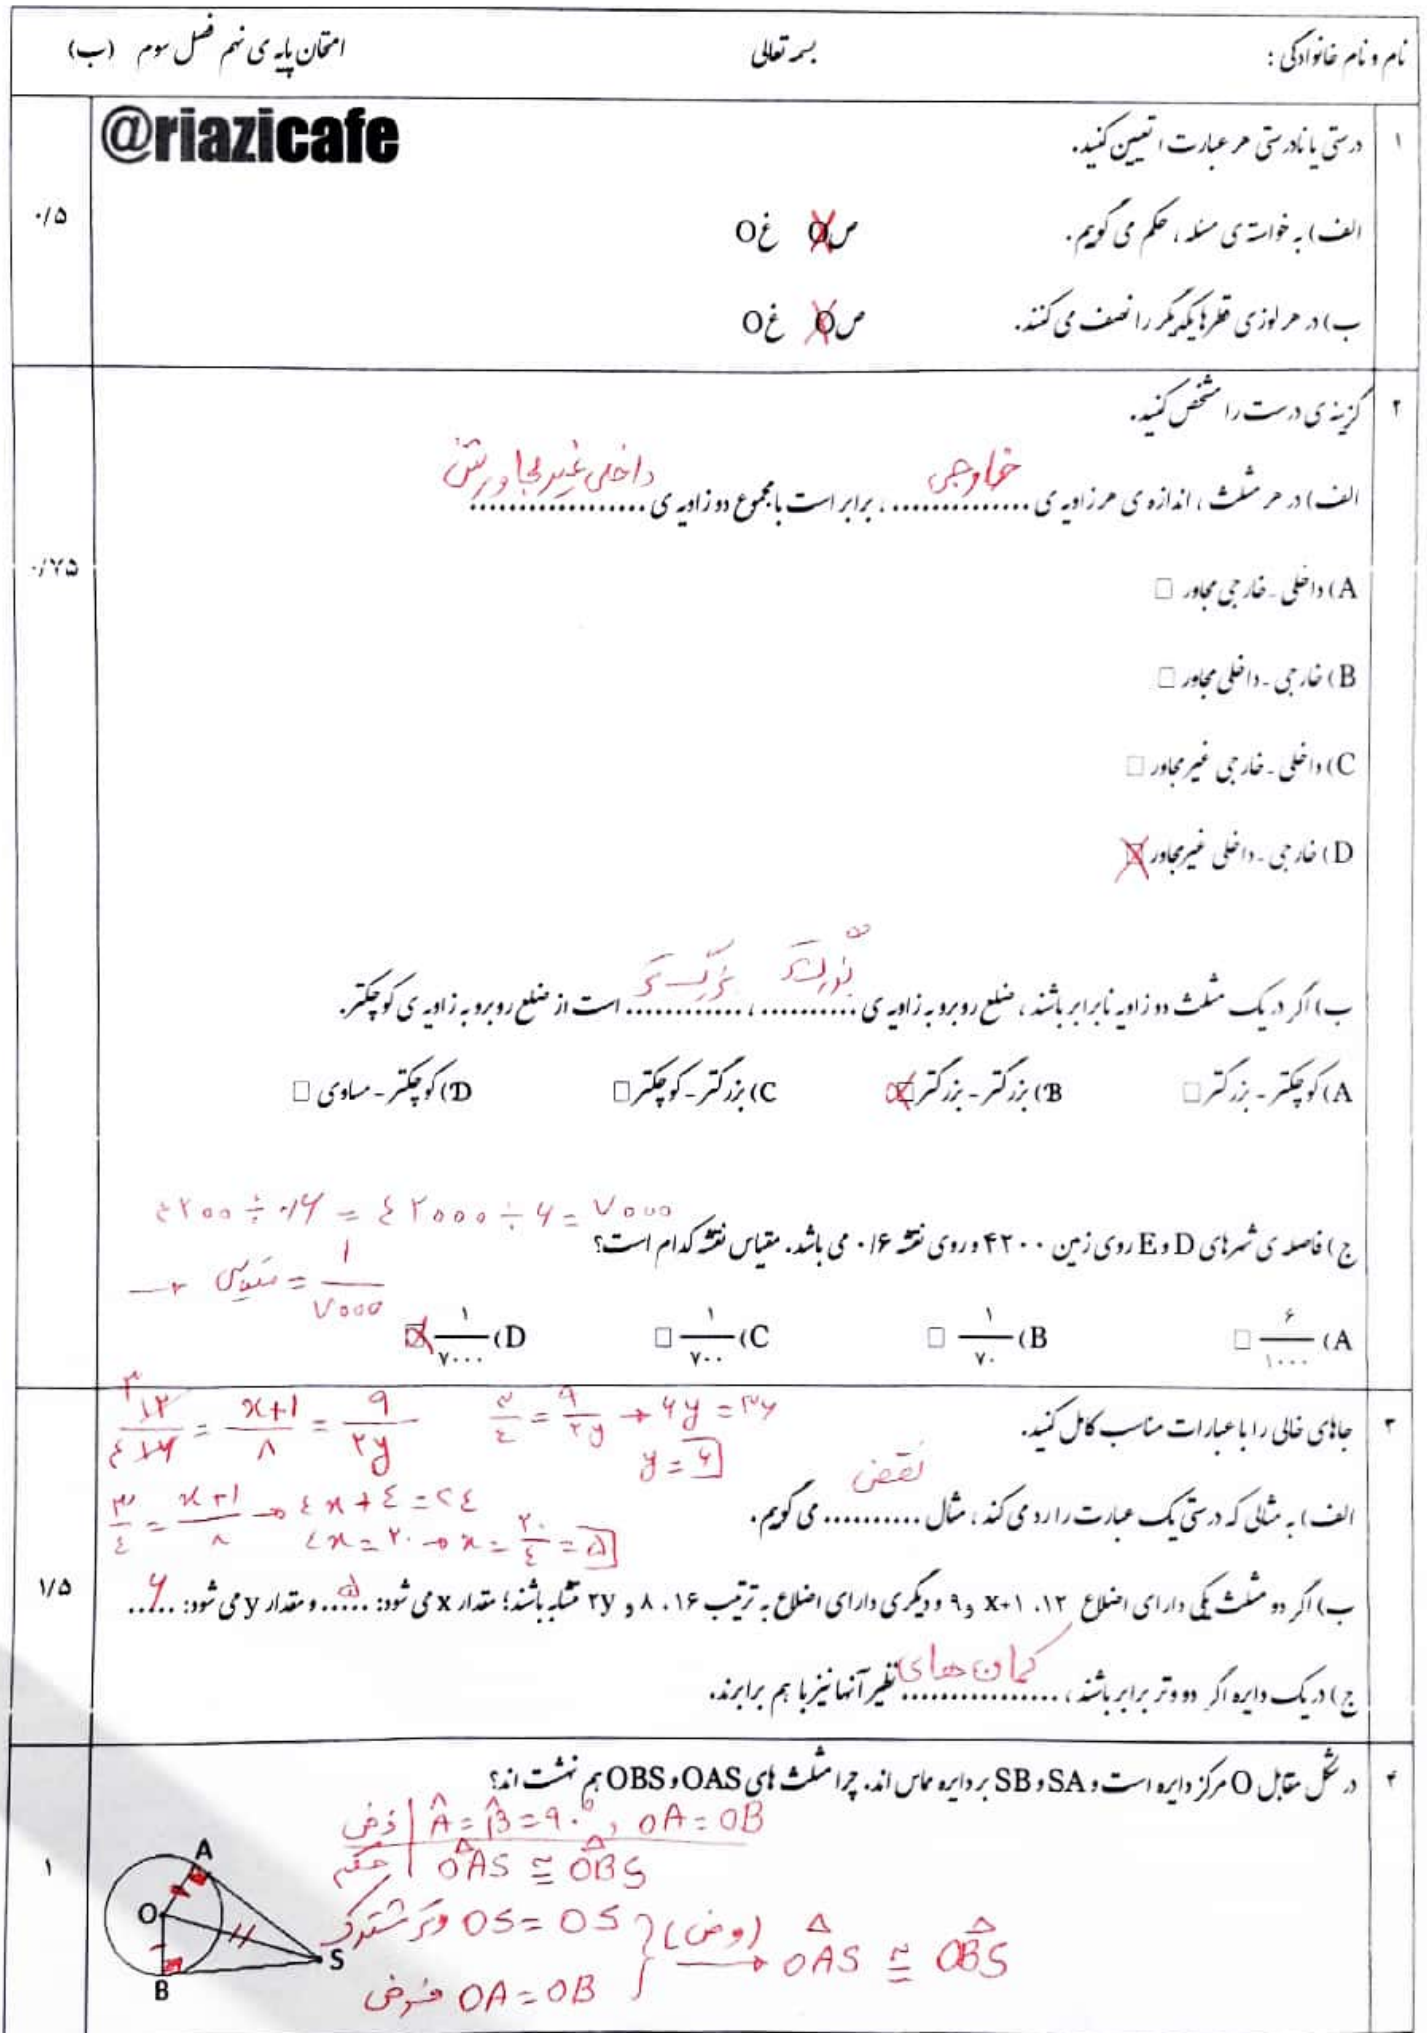 نام و نام خانوادگی :
بسمه تعالی
امتحان پایه ی نهم فصل سوم (ب)
@riazicafe
۱ درستی یا نادرستی هر عبارت ا تعیین کنید.
۰/۵
الف) به خواسته ی مسئله ، حکم می گوییم . ص O غ O
ب) در هر لوزی قطرها یکدیگر را نصف می کنند. ص O غ O
۲ گزینه ی درست را مشخص کنید.
خارجی داخلی غیر مجاورش
الف) در هر مثلث ، اندازه ی هر زاویه ی .............. ، برابر است با مجموع دو زاویه ی ..................
۰/۷۵
A) داخلی - خارجی مجاور □
B) خارجی - داخلی مجاور □
C) داخلی - خارجی غیر مجاور □
D) خارجی - داخلی غیر مجاور ☒
بزرگتر بزرگتر
ب) اگر در یک مثلث دو زاویه نابرابر باشند ، ضلع روبرو به زاویه ی .......... ، ............ است از ضلع روبرو به زاویه ی کوچکتر.
A) کوچکتر - بزرگتر □ B) بزرگتر - بزرگتر ☒ C) بزرگتر - کوچکتر □ D) کوچکتر - مساوی □
۴۲۰۰ ÷ ۰/۶ = ۴۲۰۰۰ ÷ ۶ = ۷۰۰۰
ج) فاصله ی شهرهای D و E روی زمین ۴۲۰۰ و روی نقشه ۰/۶ می باشد. مقیاس نقشه کدام است؟
→ مقیاس = ۱/۷۰۰۰
A) ۶/۱۰۰۰ □ B) ۱/۷۰ □ C) ۱/۷۰۰ □ D) ۱/۷۰۰۰ ☒
۳ جاهای خالی را با عبارات مناسب کامل کنید.
۳ ۱۲/۱۶ ۴ = x+1/۸ = ۹/۲y ۳/۴ = ۹/۲y → ۶y = ۳۶
y = ۶
نقض
الف) به مثالی که درستی یک عبارت را رد می کند ، مثال .......... می گوییم.
۳/۴ = x+1/۸ → ۴x + ۴ = ۲۴
۴x = ۲۰ → x = ۲۰/۴ = ۵
۱/۵
ب) اگر دو مثلث یکی دارای اضلاع ۱۲، x+۱ و ۹ و دیگری دارای اضلاع به ترتیب ۱۶ ، ۸ و ۲y متشابه باشند؛ مقدار x می شود: ..۵... و مقدار y می شود: ..۶...
کمان های
ج) در یک دایره اگر دو وتر برابر باشند ، ................ نظیر آنها نیز با هم برابرند.
۴ در شکل مقابل O مرکز دایره است و SA و SB بر دایره مماس اند. چرا مثلث های OAS و OBS هم نهشت اند؟
فرض | Â = B̂ = ۹۰° , OA = OB
حکم | OAS ≅ OBS
۱
OS = OS وتر مشترک
OA = OB فرض
} (وض) → OAS ≅ OBS
A
O
S
B